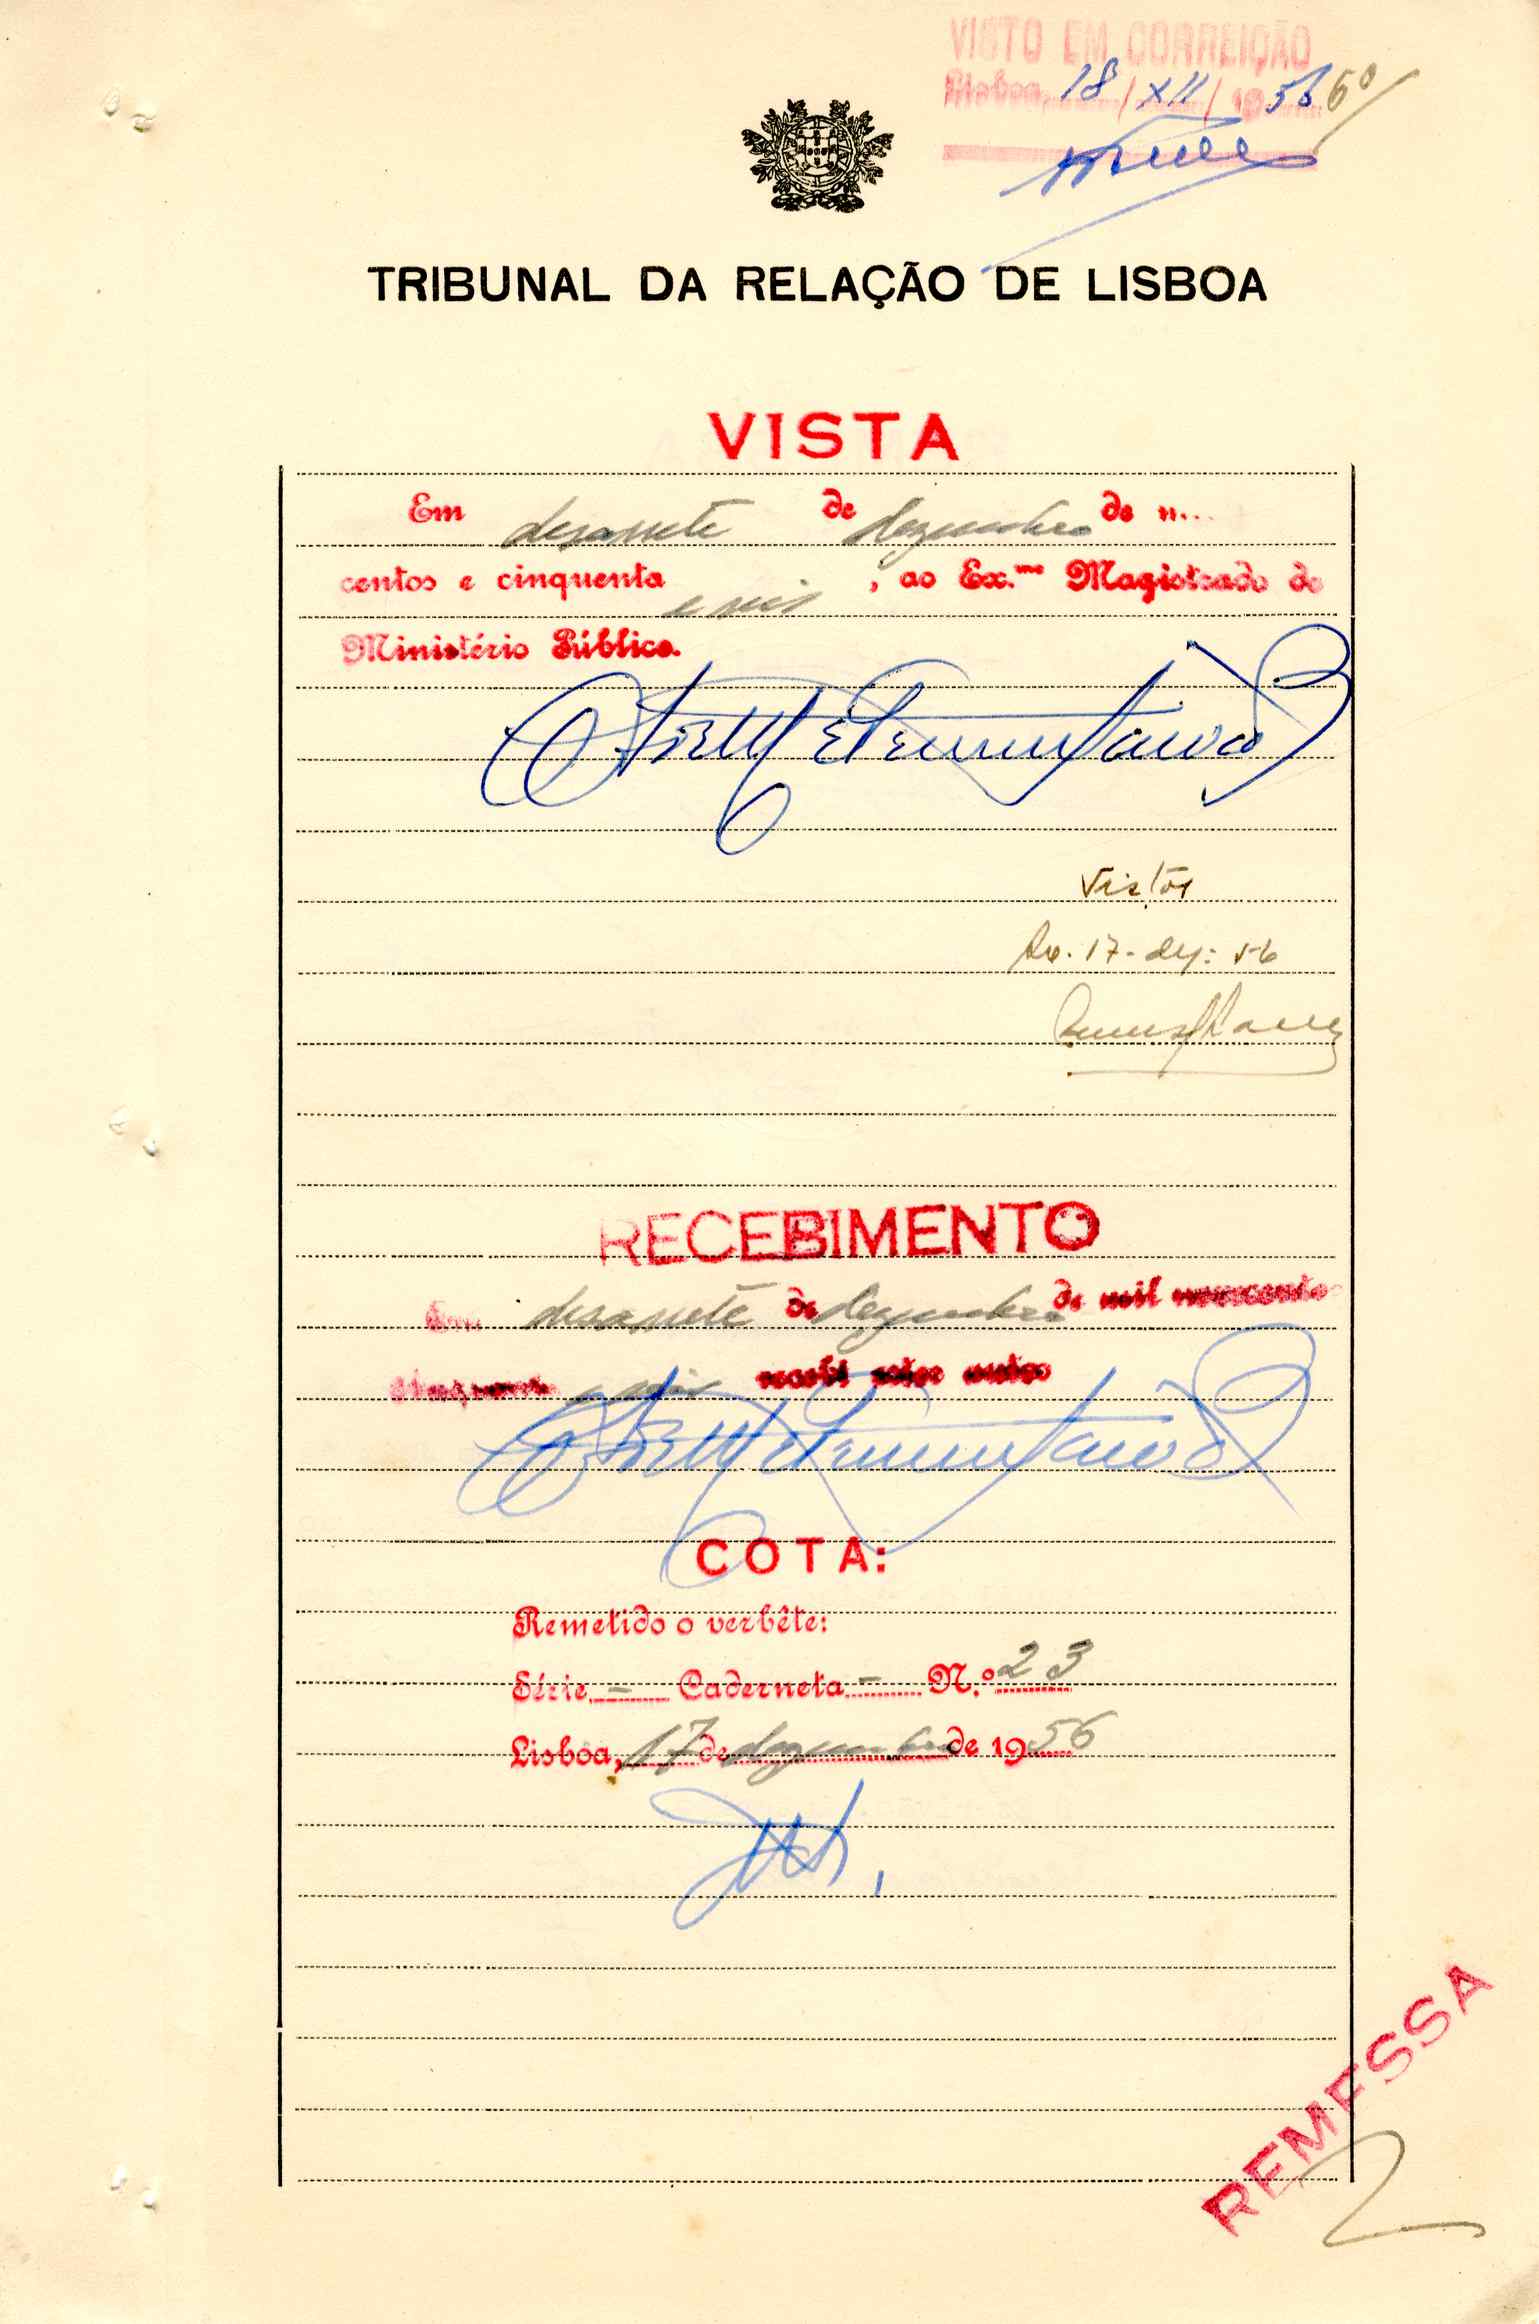 VISTO EM CORREIÇÃO
Lisboa, 18 / XII / 1956
TRIBUNAL DA RELAÇÃO DE LISBOA
VISTA
Em desassete de dezembro de
centos e cinquenta e seis, ao Ex.mo Magistrado do
Ministério Público.
Vistos
Lx. 17-dez: 56
RECEBIMENTO
Em desassete de dezembro de mil novecentos
cinquenta e seis recebi estes autos
COTA:
Remetido o verbête:
Série - Caderneta - N.º 23
Lisboa, 17 de dezembro de 1956
REMESSA